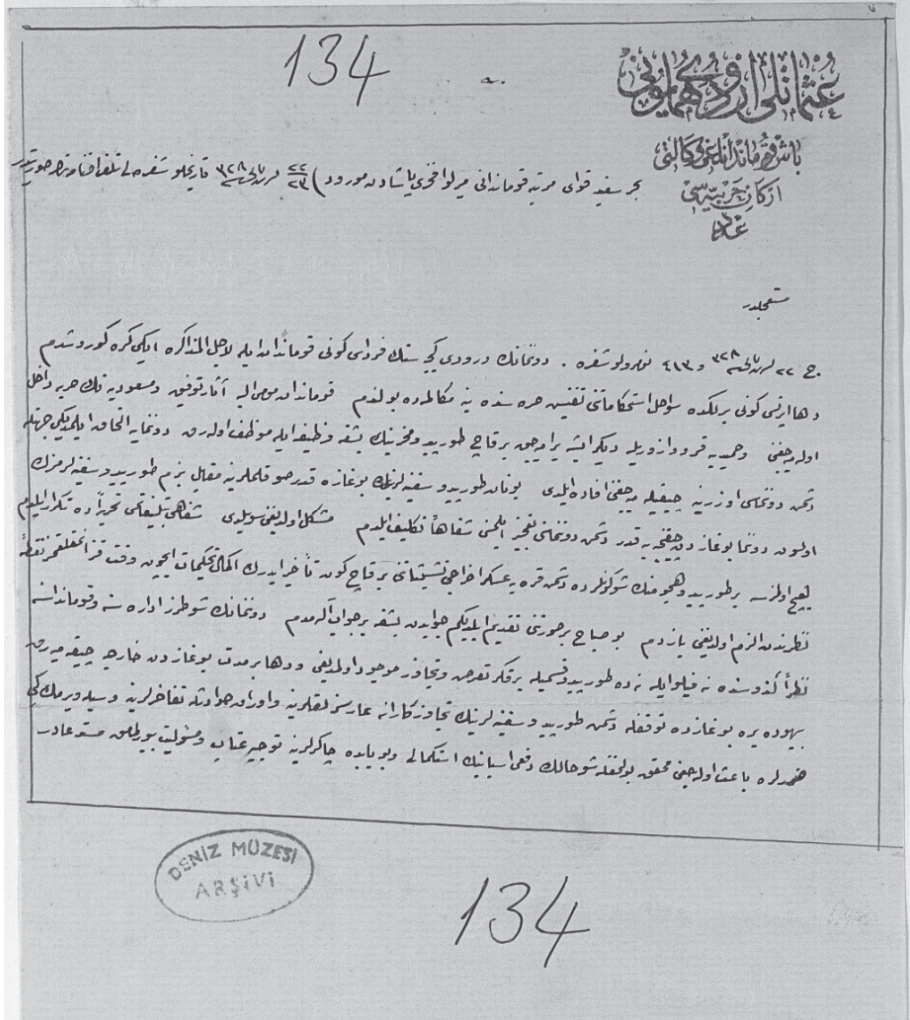 134
عثمانلی اردوی همایونی
باش قوماندانلغی وکالتی
ارکان حربیه سی
عدد
بحر سفید قوای مرتبه قوماندانی میرلوا فخری پاشادن مورود ) ٢٢/٢٣ ٣٢٨ تاریخلو شفره لی تلغرافنامه صورتیدر
مستعجلدر
ج ٢٢ ٣٢٨ و ٤١٣ نومرولو شفره . دوننمانك ورودی كیجه سنك فردای كونی قوماندان ایله لاجل المذاكره ایكی كره كوروشدم
دها ایرتسی كونی برلكده سواحل استحكاماتنی تفتیش صره سنده ینه مكالمه ده بولندم قوماندان مومی الیه آثار توفیق و مسعودیه نك حربه داخل
اوله میه جغنی و حمیدیه قرووازوریله دیكر ایشه یرامیه جق بر قاچ طورپیدو مخربنك بشقه وظیفه ایله موظف اوله رق دوننمایه التحاق ایلمدیكی جهتله
دشمن دوننماسی اوزرینه چیقیله میه جغنی افاده ایلدی یونان طورپیدو سفینه لرینك بوغازه قدر صوقلملرینه مقابل بزم طورپیدو سفینه لرمزك
اولسون دوننما بوغازدن چیقنجه یه قدر دشمن دوننماسنی تعجیز ایلمسنی شفاهاً تكلیف ایلدم مشكل اولدیغنی سویلدی شفاهی تبلیغاتمی تحریراً ده تكرار ایلدم
هیچ اولمزسه بر طورپیدو هجومنك شو كونلرده دشمن قره یه عسكر اخراجی تشبثاتنی بر قاچ كون تأخیر ایدرك اكمال تحكیمات ایچون وقت قزانمقلغمز نقطهٔ
نظرندن الزم اولدیغنی یازدم بو صباح بر صورتنی تقدیم ایلدیكم جوابدن بشقه بر جواب آله مدم دوننمانك شو طرز اداره سنه و قومانداننه
نظراً كندوسنده نه فیلو ایله نه ده طورپیدو قسمیله بر فكر تعرض و تجاوز موجود اولمدیغی و دها بر مدت بوغازدن خارجه چیقه میه رق
بیهوده یره بوغازده توقفله دشمن طورپیدو سفینه لرینك تجاوزكارانه عارسزلقلرینه و اوراق حوادثله تفاخرلرینه وسیله ویرمك كبی
ضررلره باعث اوله جغی محقق بولنمغله شو حالك دفعی اسبابنك استكمالی و بو بابده چاكرلرینه توجیه عتاب و مسئولیت بیورلمامق مستدعادر
DENİZ MÜZESİ
ARŞİVİ
134